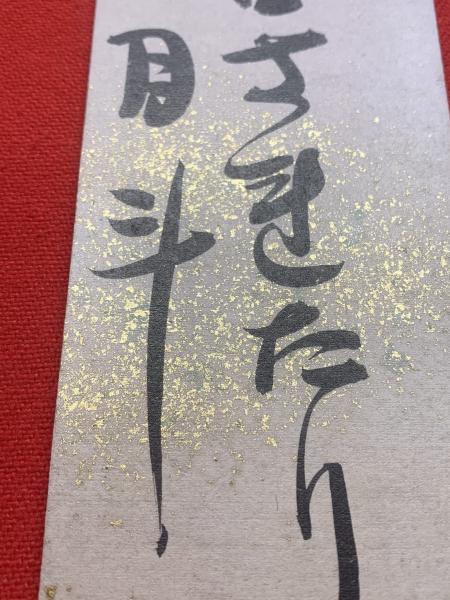 さきたり
月斗